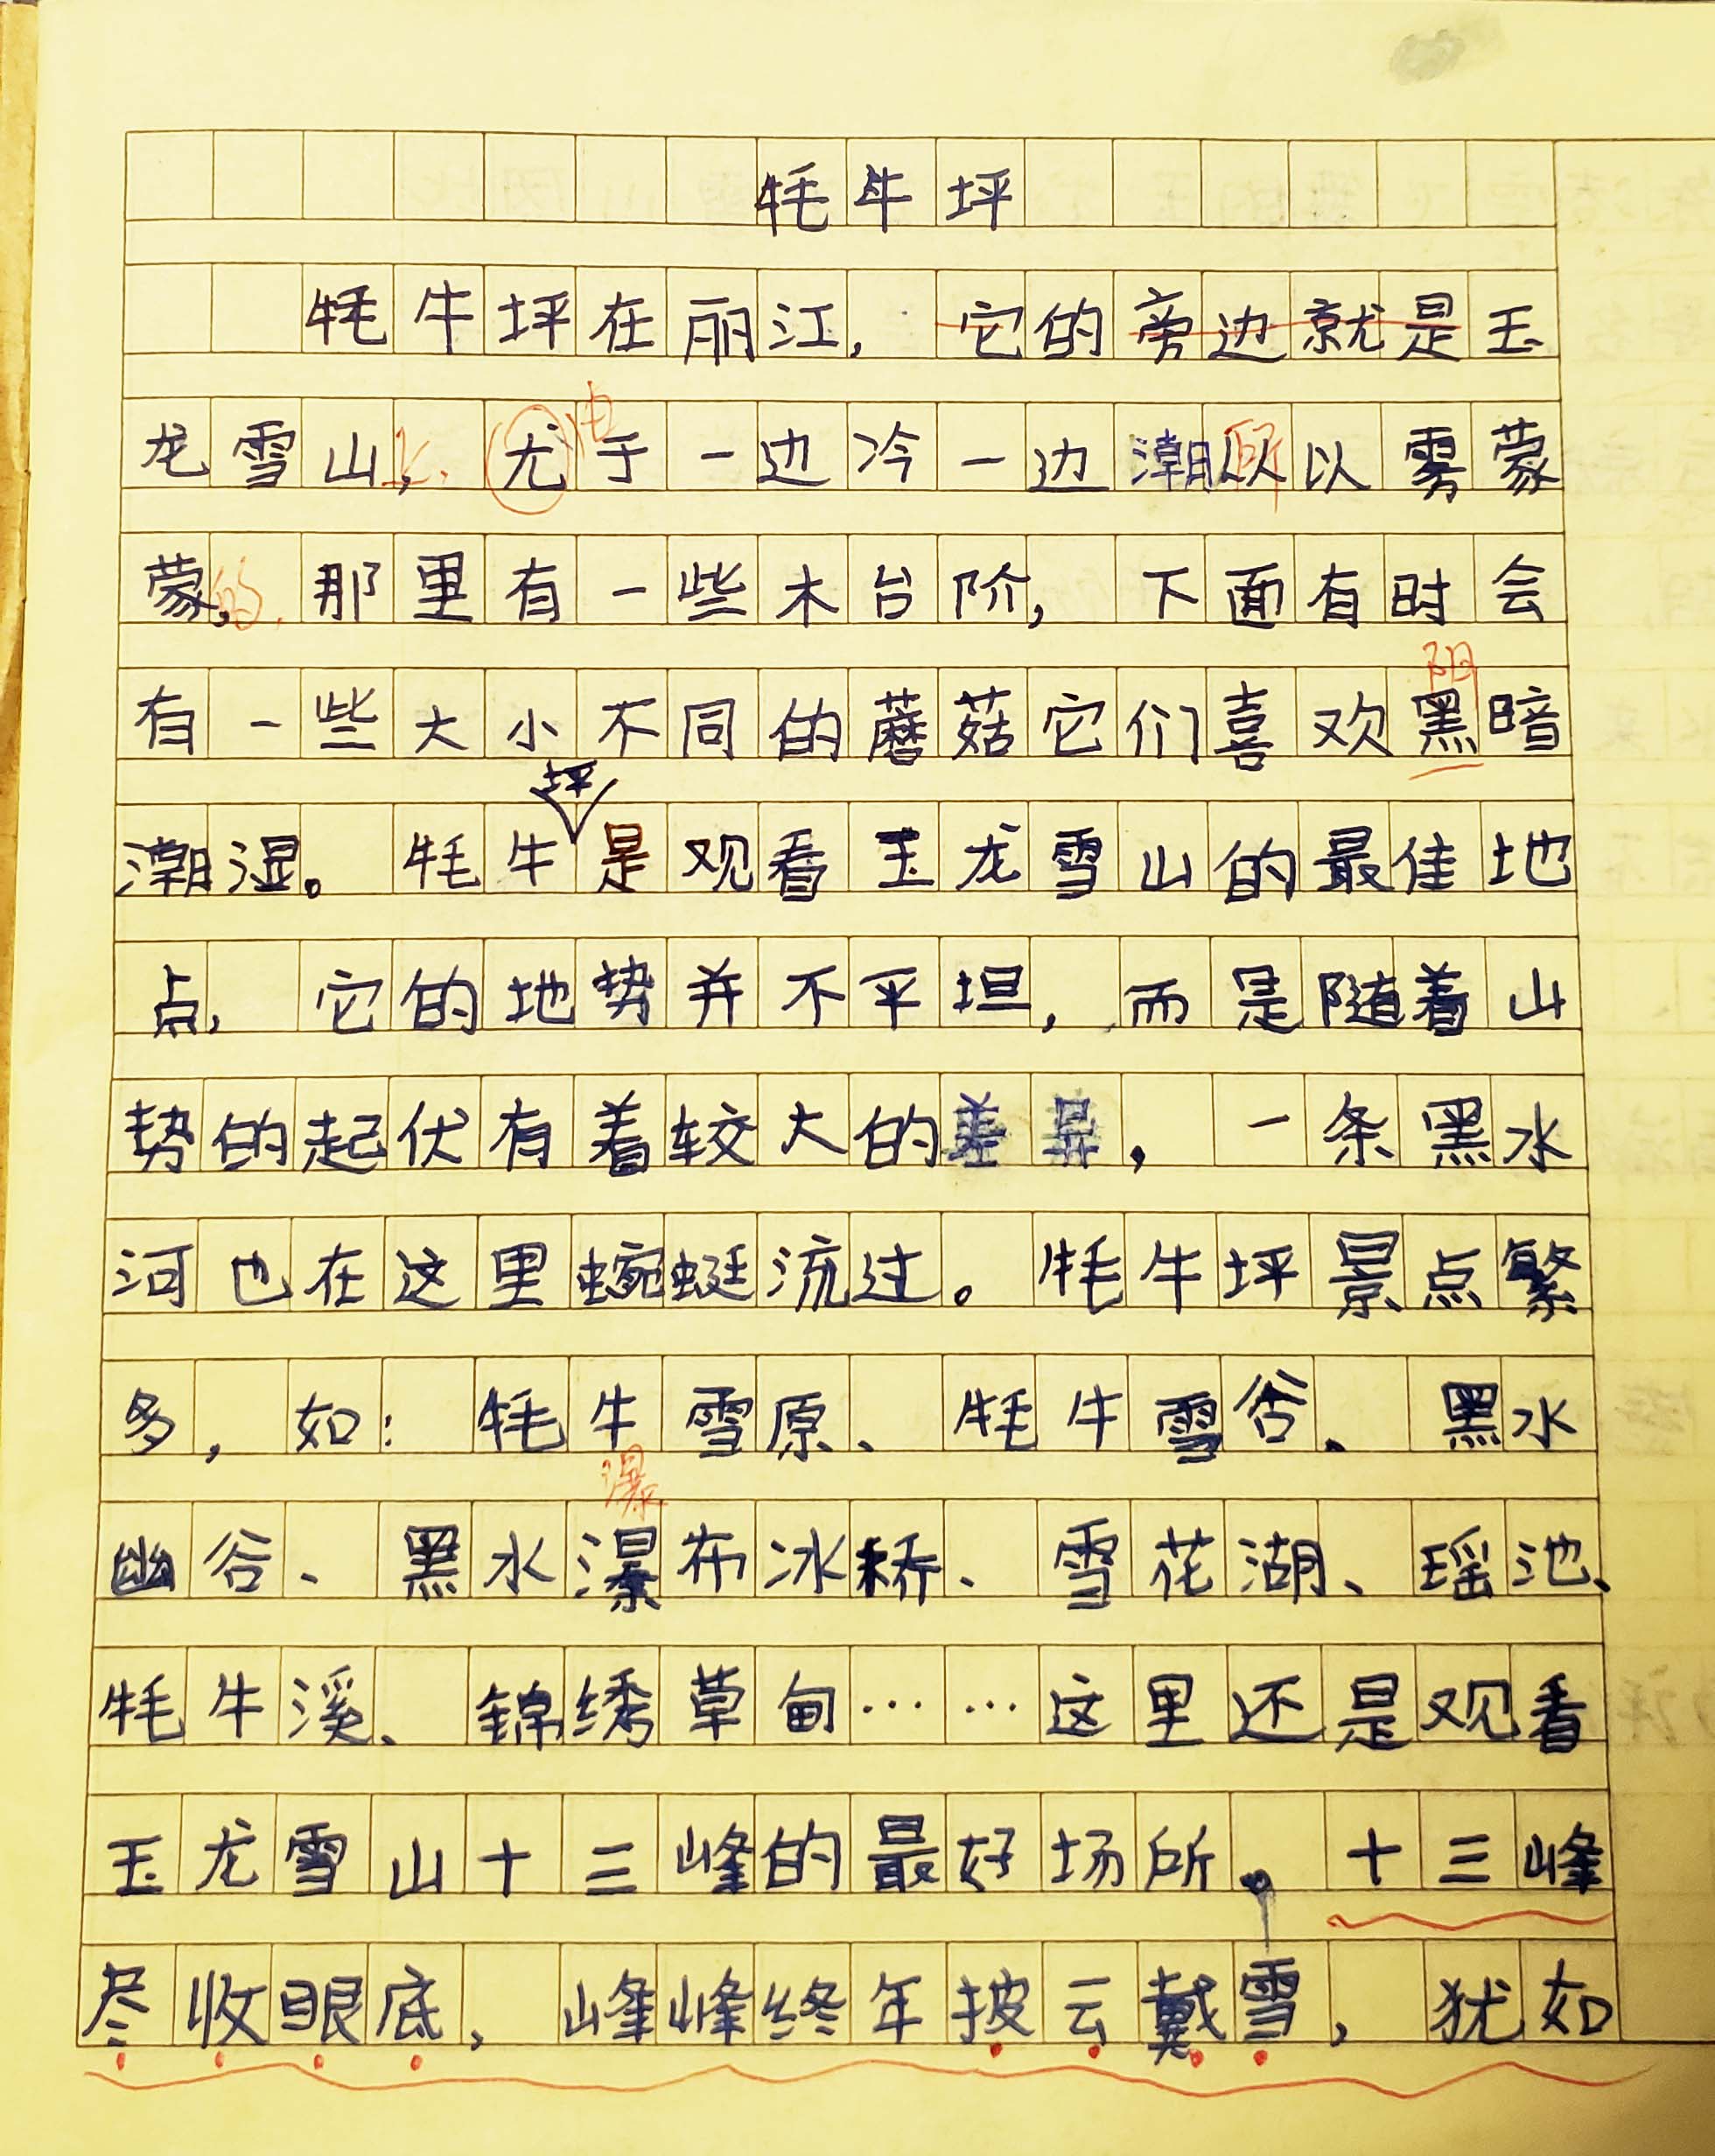 牦牛坪
牦牛坪在丽江，它的旁边就是玉
龙雪山，尤于一边冷一边潮以以雾蒙
由
所
上
蒙，那里有一些木台阶，下面有时会
的
阴
有一些大小不同的蘑菇它们喜欢黑暗
坪
潮湿。牦牛是观看玉龙雪山的最佳地
点，它的地势并不平坦，而是随着山
势的起伏有着较大的差异，一条黑水
河也在这里蜿蜒流过。牦牛坪景点繁
多，如：牦牛雪原、牦牛雪谷、黑水
瀑
幽谷、黑水瀑布冰桥、雪花湖、瑶池、
牦牛溪、锦绣草甸……这里还是观看
玉龙雪山十三峰的最好场所。十三峰
尽收眼底，峰峰终年披云戴雪，犹如